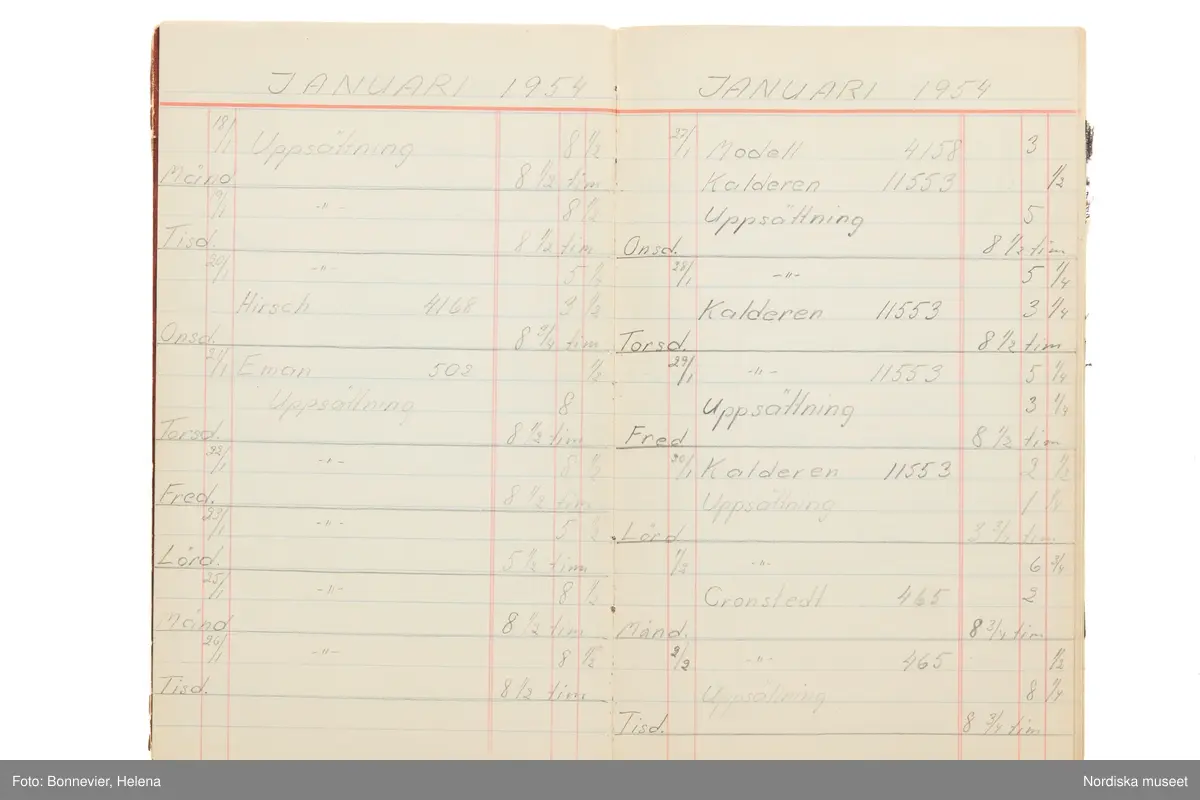 JANUARI 1954
18/1 Uppsättning 8 1/2
Månd 8 1/2 tim
19/1 -"- 8 1/2
Tisd. 8 1/2 tim
20/1 -"- 5 1/2
Hirsch 4168 3 1/2
Onsd. 8 3/4 tim
21/1 Eman 502 1/2
Uppsättning 8
Torsd. 8 1/2 tim
22/1 -"- 8 1/2
Fred. 8 1/2 tim
23/1 -"- 5 1/2
Lörd. 5 1/2 tim
25/1 -"- 8 1/2
Månd 8 1/2 tim
26/1 -"- 8 1/2
Tisd. 8 1/2 tim
JANUARI 1954
27/1 Modell 4158 3
Kalderen 11553 1/2
Uppsättning 5
Onsd. 8 1/2 tim
28/1 -"- 5 1/4
Kalderen 11553 3 1/4
Torsd. 8 1/2 tim
29/1 -"- 11553 5 1/4
Uppsättning 3 1/4
Fred 8 1/2 tim
30/1 Kalderen 11553 2 1/2
Uppsättning 1 1/4
Lörd 3 3/4 tim
1/2 -"- 6 3/4
Cronstedt 465 2
Månd. 8 3/4 tim
2/2 -"- 465 1/2
Uppsättning 8 1/4
Tisd. 8 3/4 tim
Foto: Bonnevier, Helena
Nordiska museet